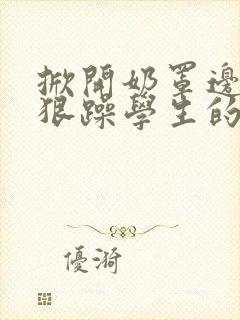 掀開奶罩邊
狠躁學生的
優漪